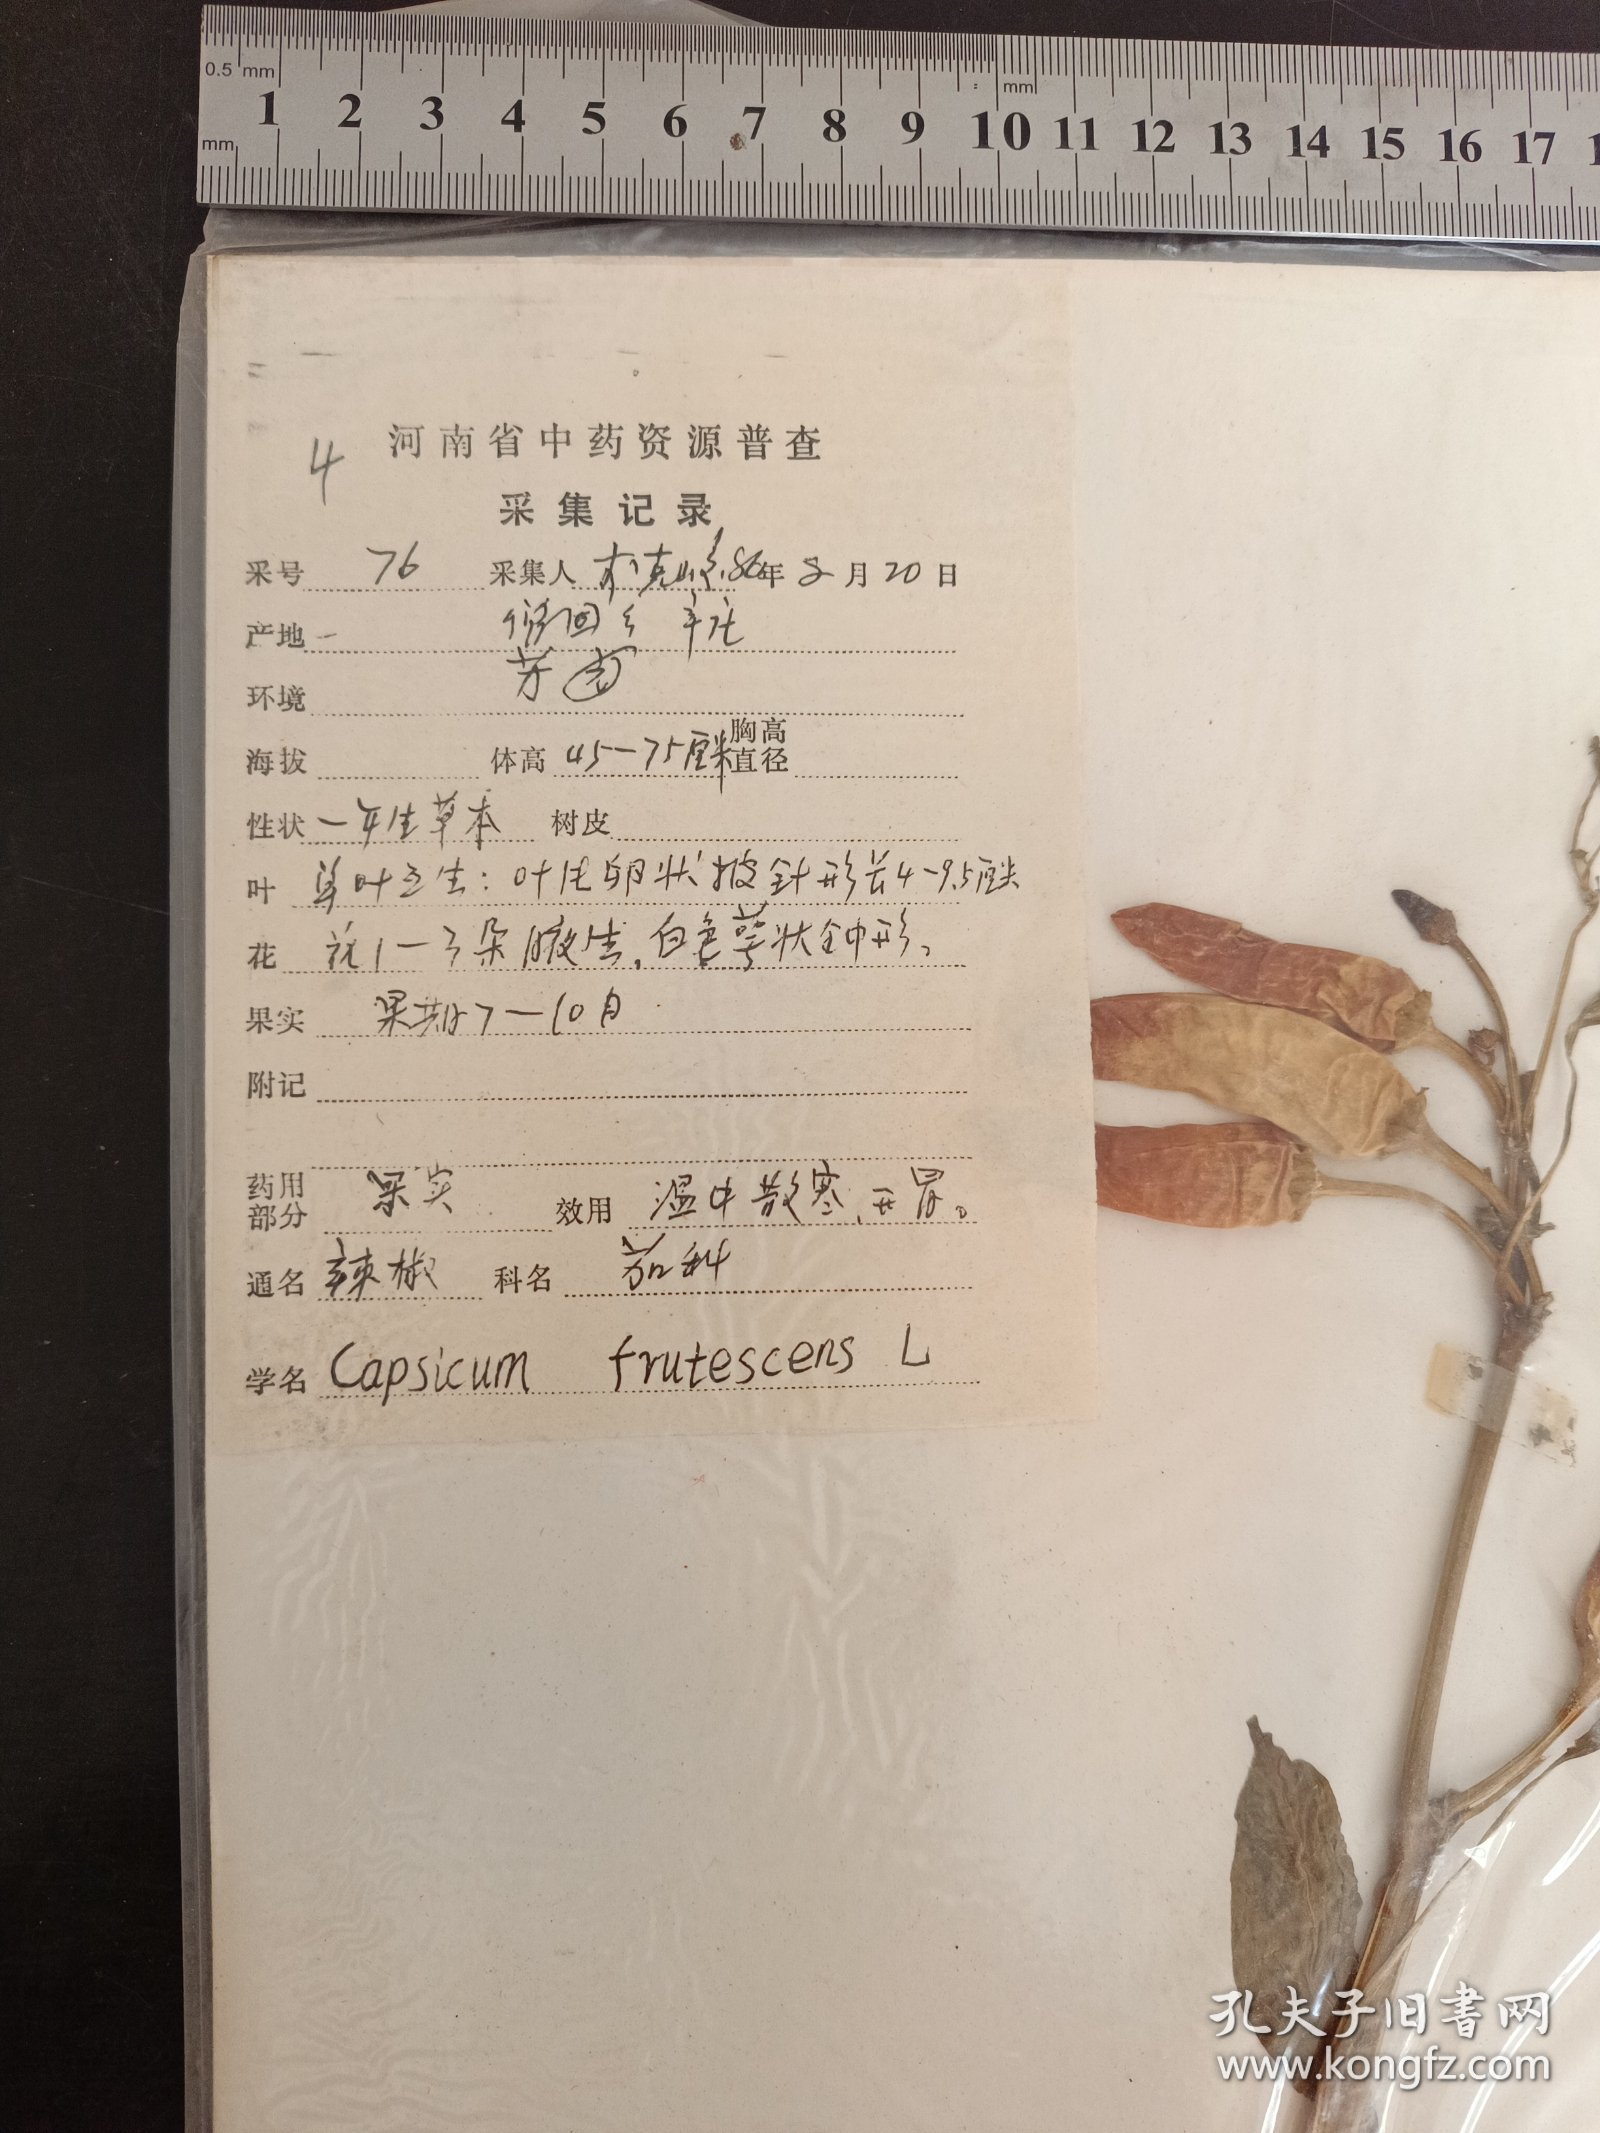 0.5 mm
mm
1 2 3 4 5 6 7 8 9 10 11 12 13 14 15 16 17
mm
4
河南省中药资源普查
采集记录
采号 76 采集人 86年 8月20日
产地
环境
海拔 体高 45-75厘米 胸高直径
性状 一年生草本 树皮
叶 单叶互生:叶片卵状披针形长4-9.5厘米
花 花1-3朵腋生,白色萼状钟形。
果实 果期7-10月
附记
药用部分 果实 效用 温中散寒,开胃。
通名 辣椒 科名 茄科
学名 Capsicum frutescens L
孔夫子旧书网
www.kongfz.com